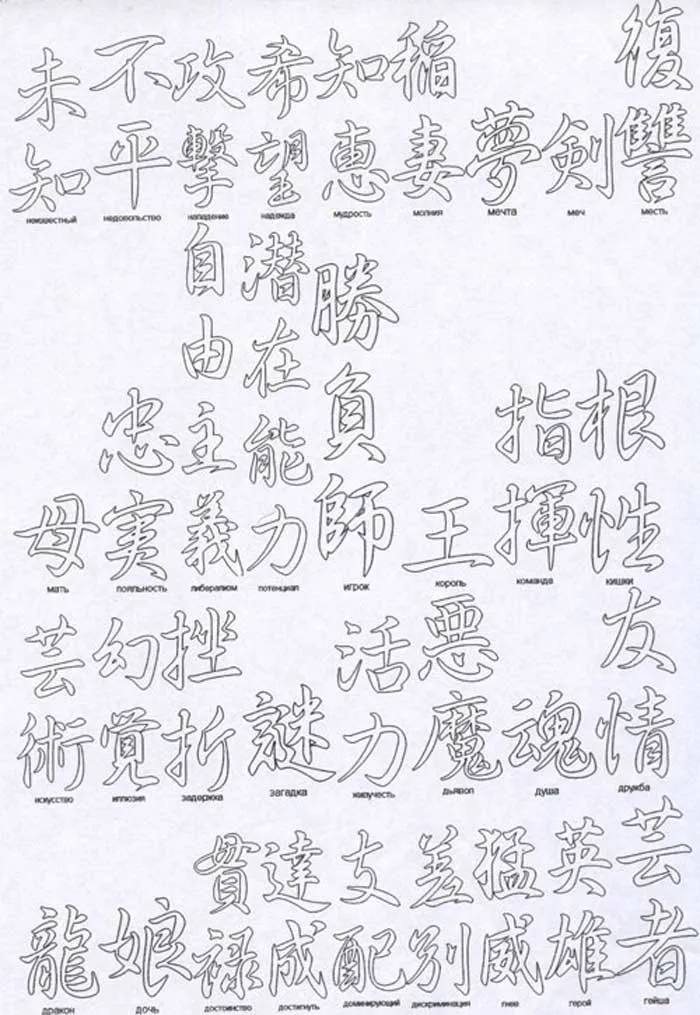 未知
неизвестный
不平
недовольство
攻撃
нападение
希望
надежда
知恵
мудрость
稲妻
молния
夢
мечта
剣
меч
復讐
месть
母
мать
忠実
лояльность
自由主義
либерализм
潜在能力
потенциал
勝負師
игрок
王
король
指揮
команда
根性
кишки
芸術
искусство
幻覚
иллюзия
挫折
задержка
謎
загадка
活力
живучесть
悪魔
дьявол
魂
душа
友情
дружба
龍
дракон
娘
дочь
貫禄
достоинство
達成
достигнуть
支配
доминирующий
差別
дискриминация
猛威
гнев
英雄
герой
芸者
гейша